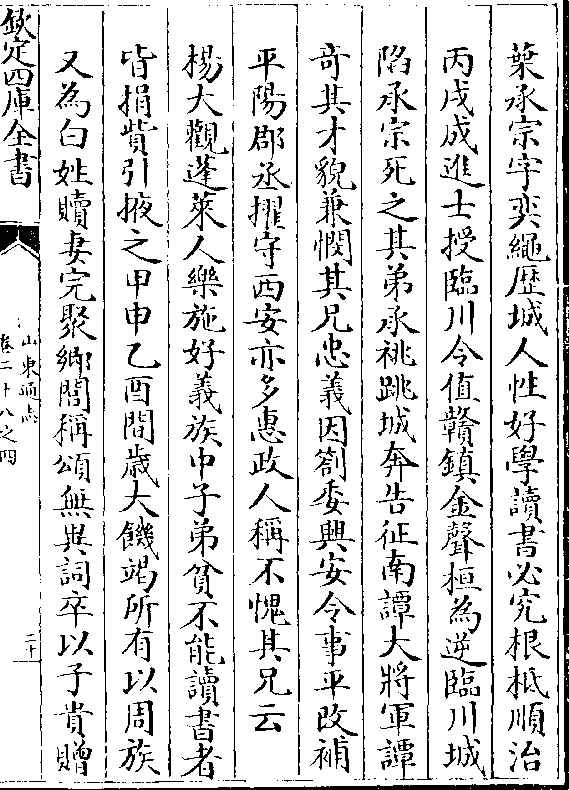 葉承宗字奕繩歴城人性好學讀書必究根柢順治
丙戌成進士授臨川令值贛鎮金聲桓為逆臨川城
陷承宗死之其弟承祧跳城奔告征南譚大將軍譚
竒其才貌兼憫其兄忠義因劄委興安令事平改補
平陽郡丞擢守西安亦多惠政人稱不愧其兄云
楊大觀蓬萊人樂施好義族中子弟貧不能讀書者
皆捐貲引掖之甲申乙酉間歳大饑竭所有以周族
又為白姓贖妻完聚鄉閭稱頌無異詞卒以子貴贈
欽定四庫全書
山東通志
卷二十八之四
二十